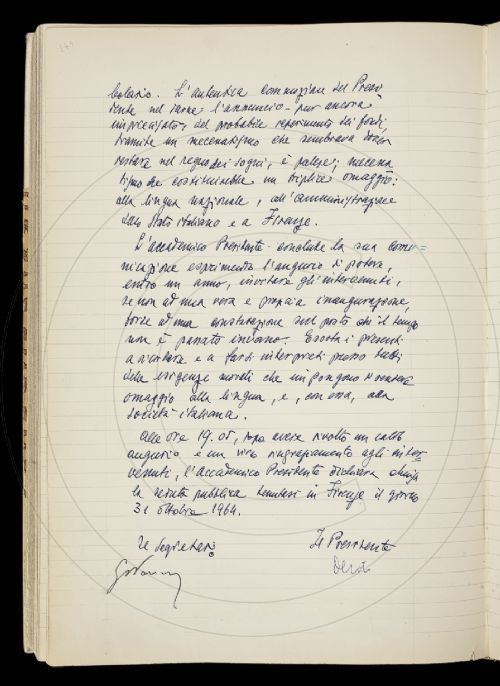 bolario. L'autentica commozione del Presi
dente nel dare l'annuncio - pur ancora
imprecisato, del probabile reperimento dei fondi,
tramite un mecenatismo che sembrava dover
restare nel regno dei sogni, è palese; mecena
tismo che costituirebbe un triplice omaggio:
alla lingua nazionale, all'amministrazione
dello Stato italiano e a Firenze.
L'accademico Presidente conclude la sua comu=
nicazione esprimendo l'augurio di potere,
entro un anno, invitare gli intervenuti,
se non ad una vera e propria inaugurazione,
forse ad una constatazione sul posto che il tempo
non è passato indarno. Esorta i presenti
a aiutare e a farsi interpreti presso tutti
delle esigenze morali che impongono
omaggio alla lingua, e, con essa, alla
società italiana.
Alle ore 19.05, dopo avere rivolto un caldo
augurio e un vivo ringraziamento agli inter-
venuti, l'Accademico Presidente dichiara chiusa
la seduta pubblica tenutasi in Firenze il giorno
31 ottobre 1964.
Il Segretario
Il Presidente
Devoto